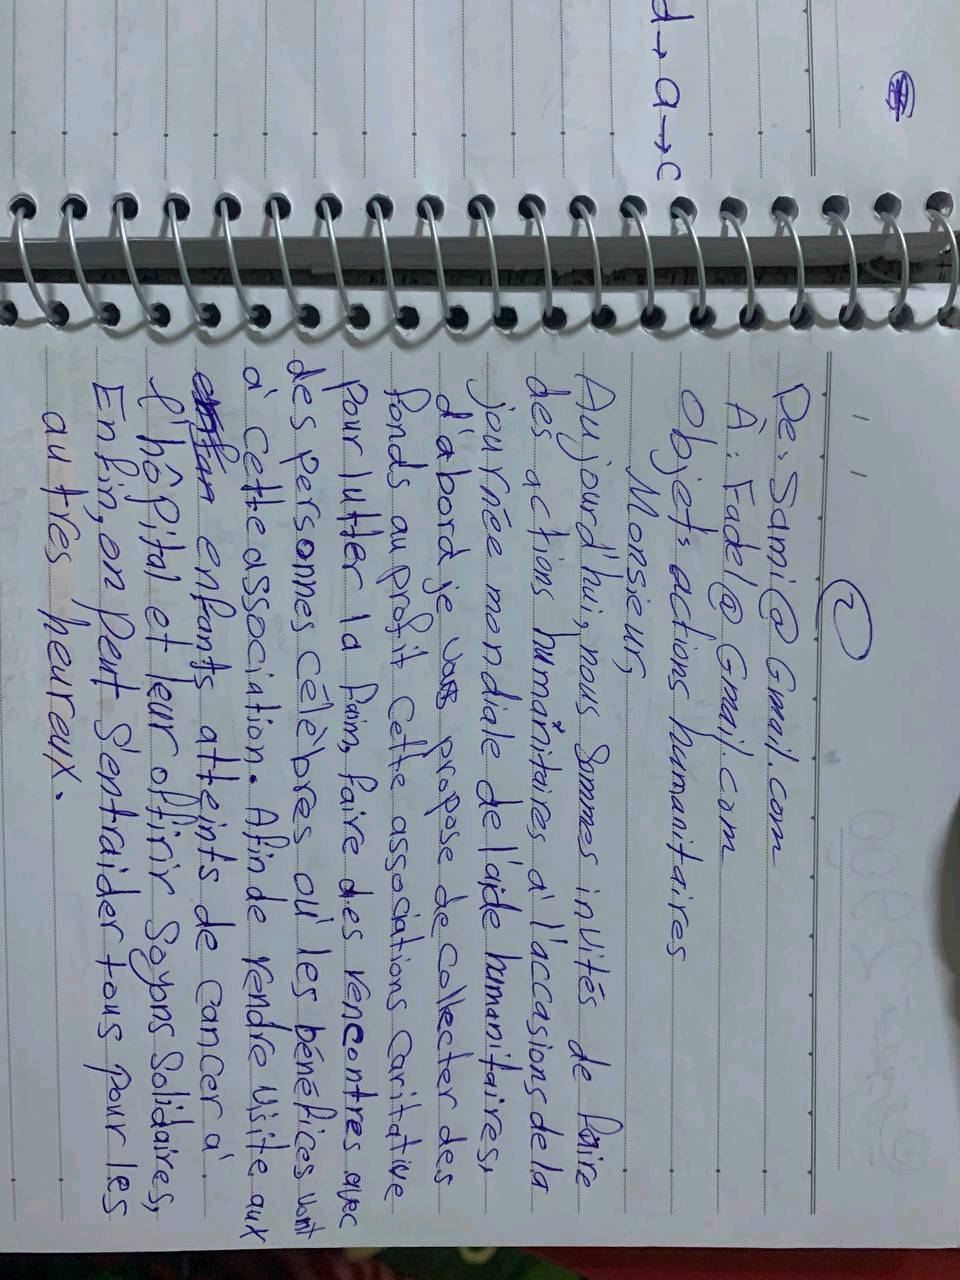 d → a → c
2
De: Sami@Gmail.com
À: Fadel@Gmail.com
Objet: actions humanitaires
Monsieur,
Aujourd'hui, nous Sommes invités de faire
des actions humanitaires à l'accasions de la
journée mondiale de l'aide humanitaires,
d'abord je vous propose de collecter des
fonds au profit cette associations caritative
Pour lutter la faim, faire des rencontres avec
des personnes célèbres où les bénéfices vont
à cette association. Afin de rendre visite aux
enfants atteints de cancer à
l'hôpital et leur offrir Soyons Solidaires,
Enfin, on Peut S'entraider tous pour les
autres heureux.